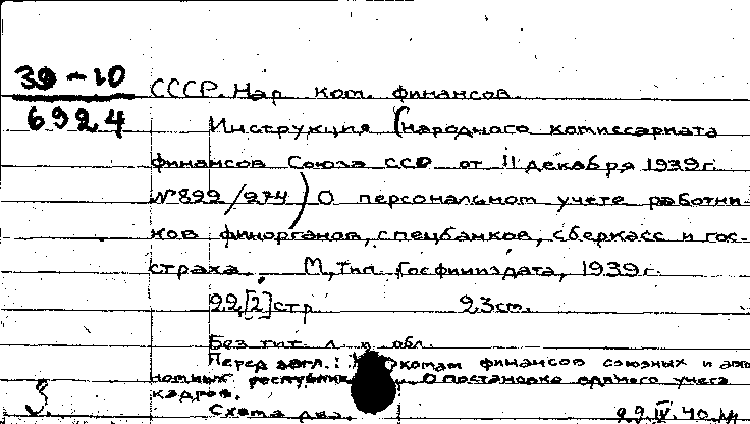 39-10
6924
СССР. Нар. ком. финансов.
Инструкция (народного комиссариата
финансов Союза ССР от 11 декабря 1939 г.
№ 899/274) О персональном учете работни-
ков финорганов, спецбанков, сберкасс и гос-
страха. М., Тип. Госфиниздата, 1939 г.
22, [2] стр. 23 см.
Без тит. л. и обл.
Перед загл.: финансов союзных и авто
номных республик О постановке единого учета
кадров.
3.
Схема два. 29.IV.40.